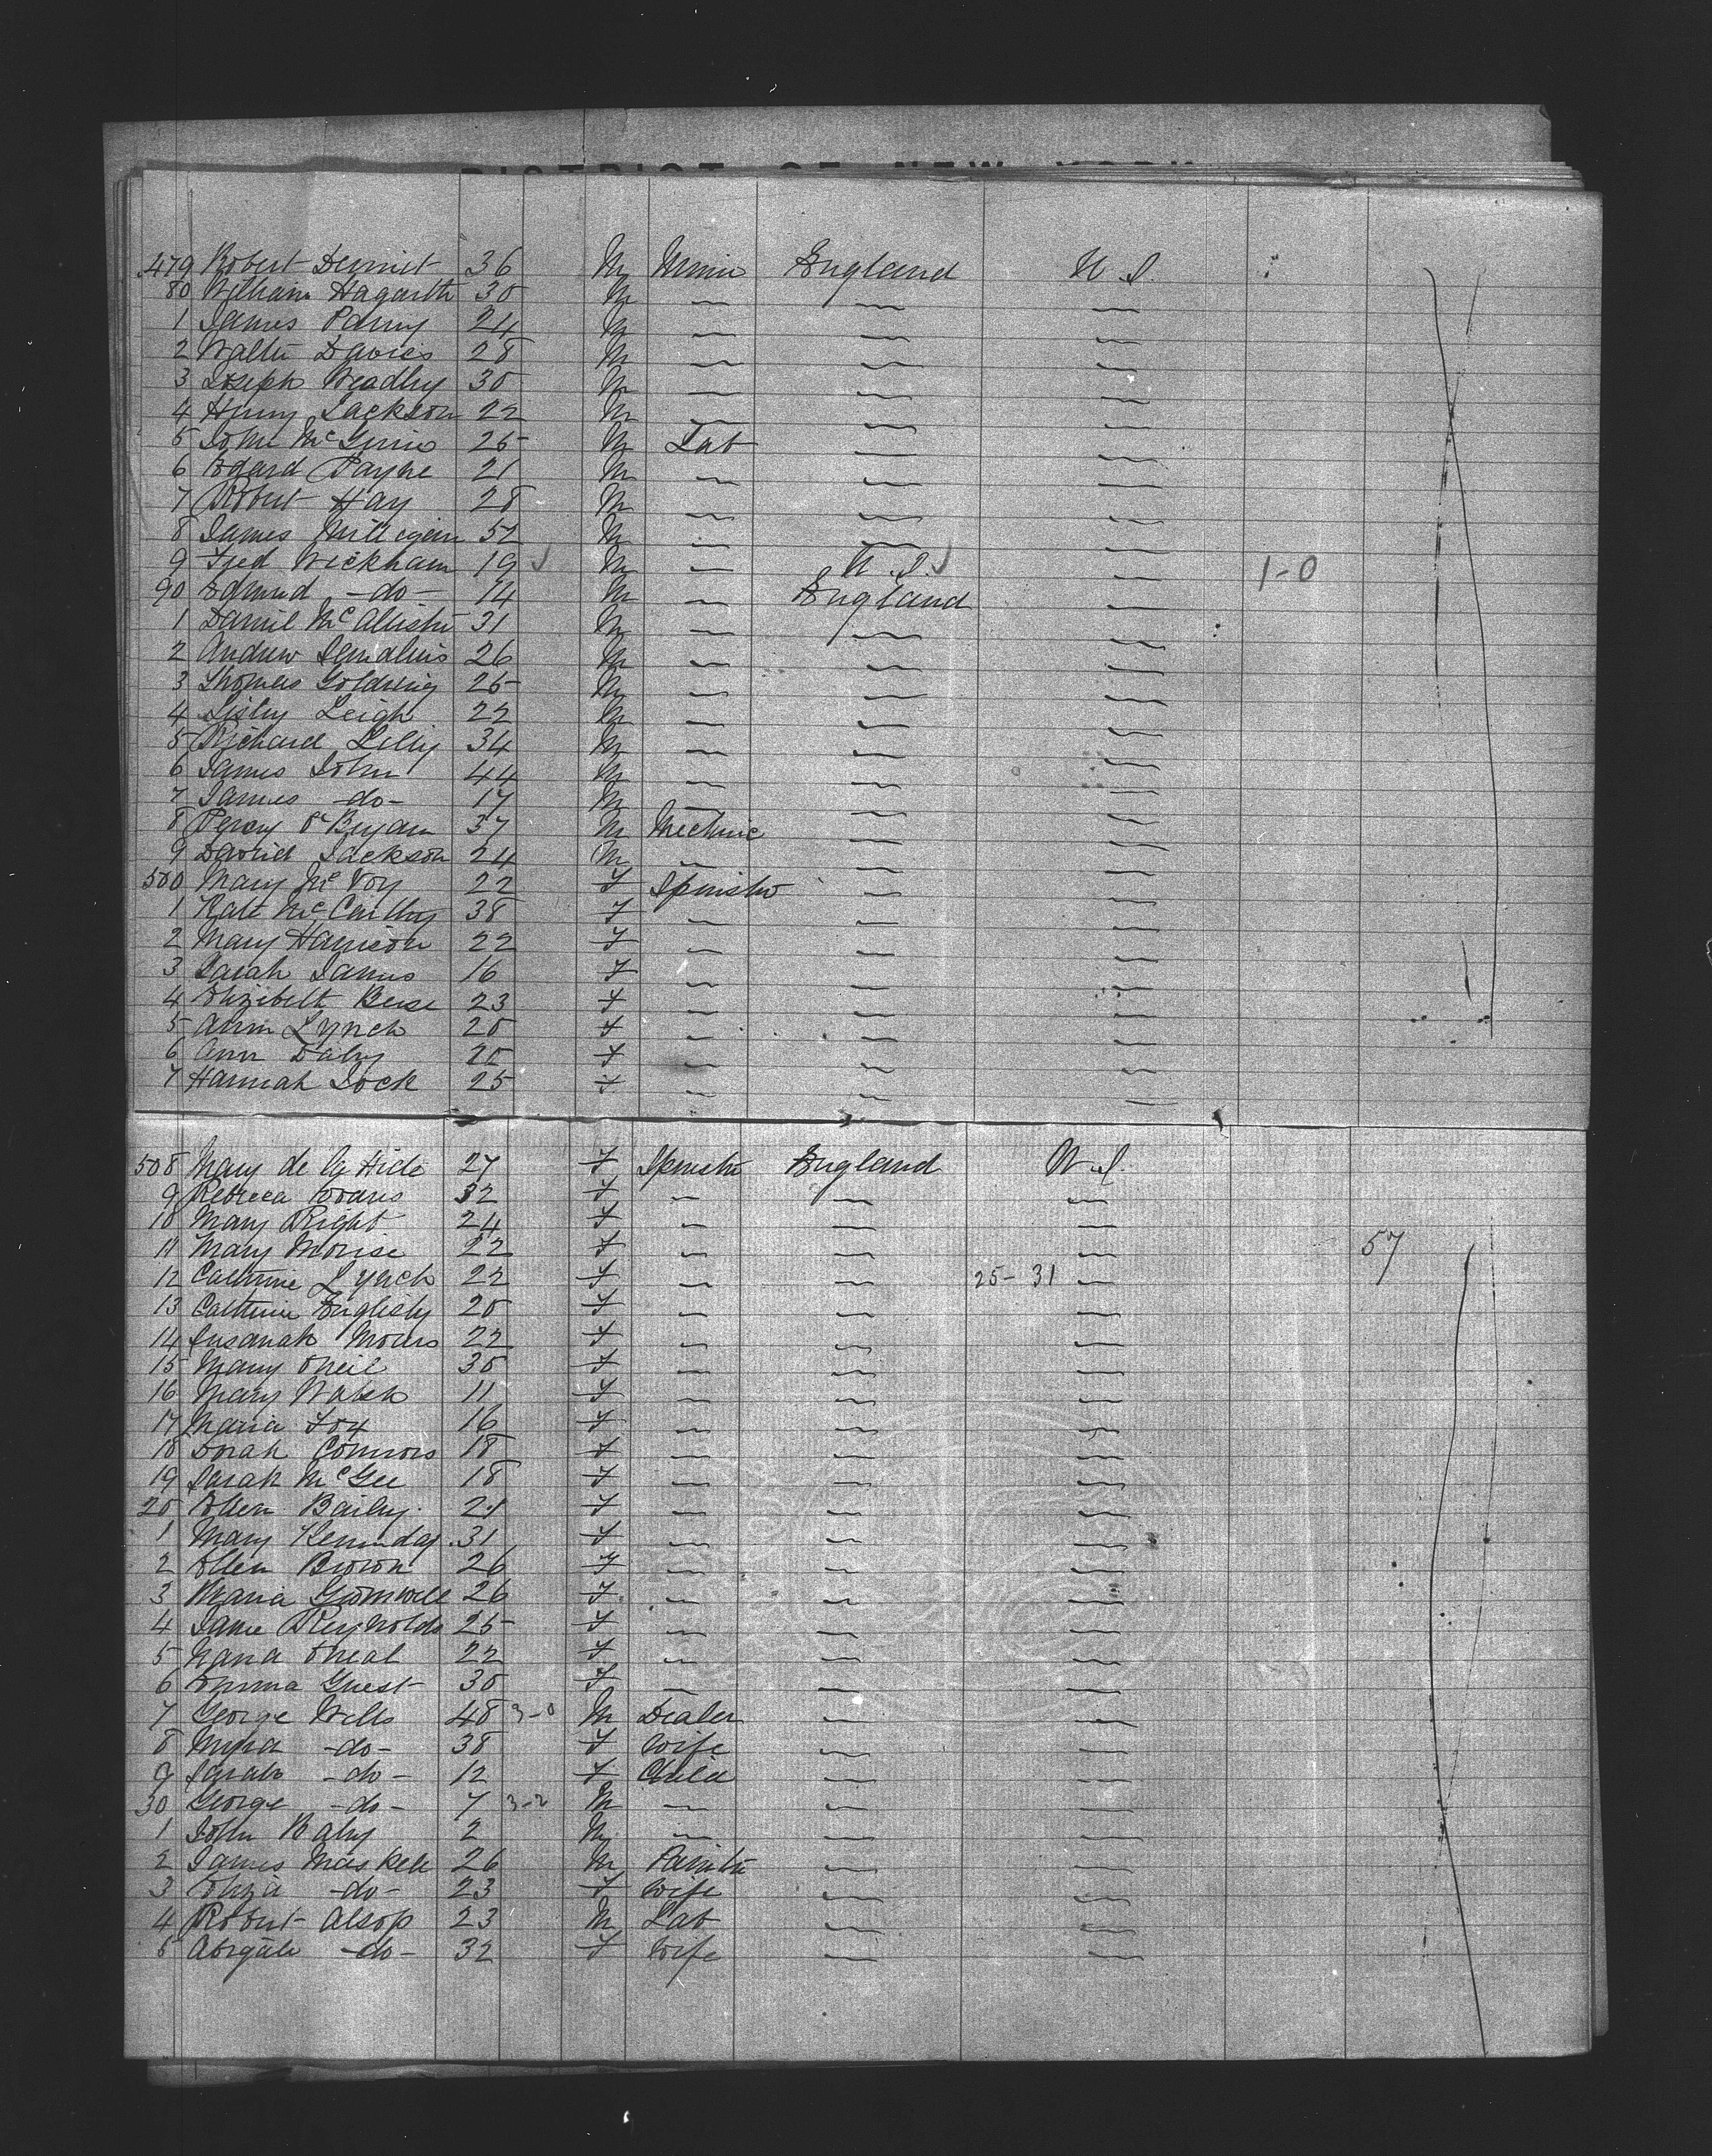 DISTRICT OF NEW YORK
479 Robert 36 M Miner England U.S.
80 William Hagarth 30 M — — —
1 James Parry 24 M — — —
2 Walter Davies 28 M — — —
3 Joseph Weadley 30 M — — —
4 Henry Jackson 22 M — — —
5 John McGinnis 25 M Lab — —
6 Edard Payne 21 M — — —
7 Robert Hay 28 M — — —
8 James Milligan 52 M — — —
9 Fred Wickham 19 M — U.S. — 1-0
90 Edmund -do- 14 M — England —
1 Daniel McAllister 31 M — — —
2 Andrew 26 M — — —
3 Thomas Goldring 25 M — — —
4 Leigh 22 M — — —
5 Richard Lilly 34 M — — —
6 James John 44 M — — —
7 James -do- 17 M — — —
8 Percy O'Bryan 37 M Mechnic — —
9 David Jackson 24 M — — —
500 Mary McVoy 22 F Spinster — —
1 Kate McCarthy 38 F — — —
2 Mary Harrison 22 F — — —
3 Sarah James 16 F — — —
4 Elizibeth 23 F — — —
5 Ann Lynch 20 F — — —
6 Ann Daly 20 F — — —
7 Hannah Lock 25 F — — —
508 Mary de la Hide 27 F Spinster England U.S.
9 Rebecca Evans 32 F — — —
10 Mary Right 24 F — — —
11 Mary Morise 22 F — — — 57
12 Catherine Lynch 22 F — — 25-31 —
13 Catherine Englisby 20 F — — —
14 Susanah Moors 22 F — — —
15 Mary ONeil 30 F — — —
16 Mary Walsh 11 F — — —
17 Maria Fox 16 F — — —
18 Dorah Connors 18 F — — —
19 Sarah McGee 18 F — — —
20 Ellen Baily 21 F — — —
1 Mary 31 F — — —
2 Ellen Brown 26 F — — —
3 Maria 26 F — — —
4 Jane Reynolds 25 F — — —
5 Oneal 22 F — — —
6 Emma Guest 30 F — — —
7 George Wells 48 3-0 M Dealer — —
8 -do- 38 F Wife — —
9 Sarah -do- 12 F Child — —
30 George -do- 7 3-2 M — — —
1 John 2 M — — —
2 James Maskell 26 M Painter — —
3 Eliza -do- 23 F Wife — —
4 Robert Alsop 23 M Lab — —
5 Abigale -do- 32 F Wife — —